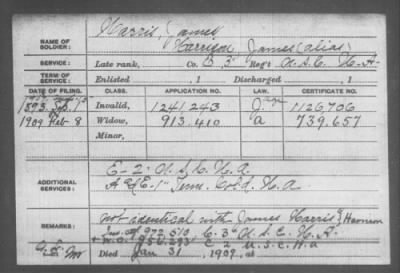 NAME OF SOLDIER: Harris, James
Harrison, James (alias)
SERVICE: Late rank, Co. B, 3" Reg't U.S.C. H.A.
TERM OF SERVICE: Enlisted , 1 Discharged , 1
DATE OF FILING. CLASS. APPLICATION NO. LAW. CERTIFICATE NO.
1893 Invalid, 1241.243 1126706
1909 Feb 8 Widow, 913.410 a 739.657
Minor,
ADDITIONAL SERVICES: E-2" U.S.C. H.A.
A & E-1" Tenn. Col'd. H.A
REMARKS: not identical with James Harris & Harrison
Inv. 972.510 C-3" U.S.C. H.A.
C 2 U.S.C. H.A
Died Jan 31, 1909, at